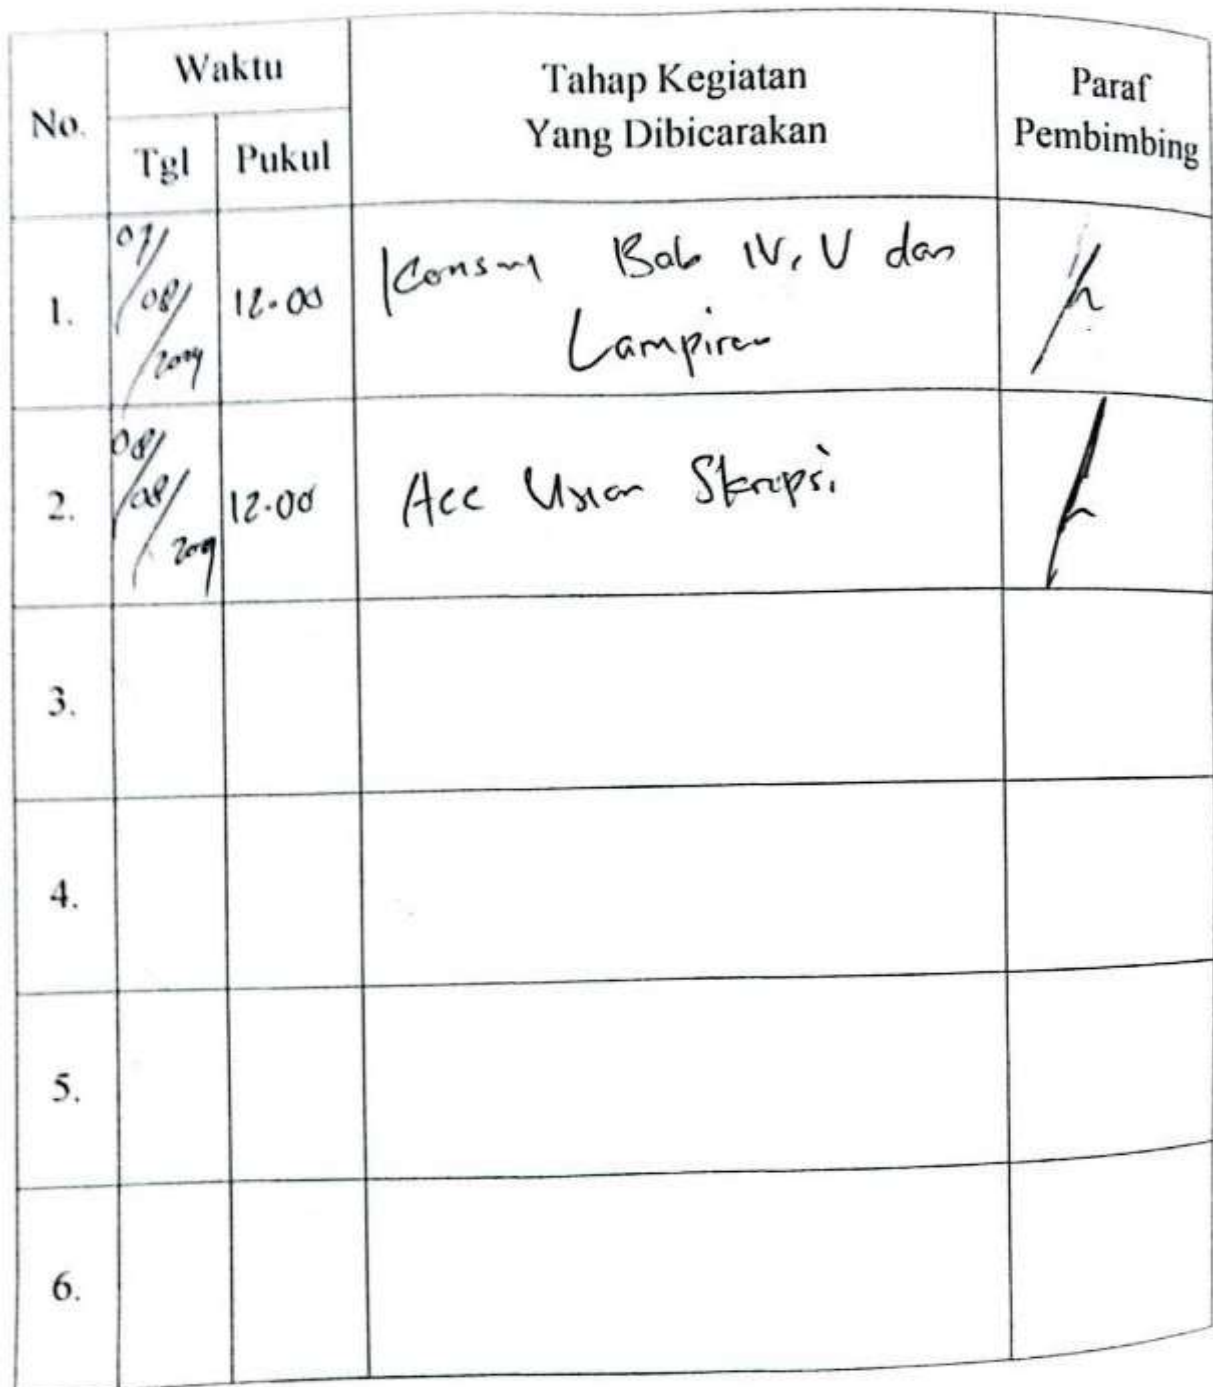 No.
Waktu
Tgl
Pukul
Tahap Kegiatan
Yang Dibicarakan
Paraf
Pembimbing
1.
07/
08/
12.00
Bab IV, V dan
Lampiran
2.
08/
08/
12.00
Acc Skripsi
3.
4.
5.
6.